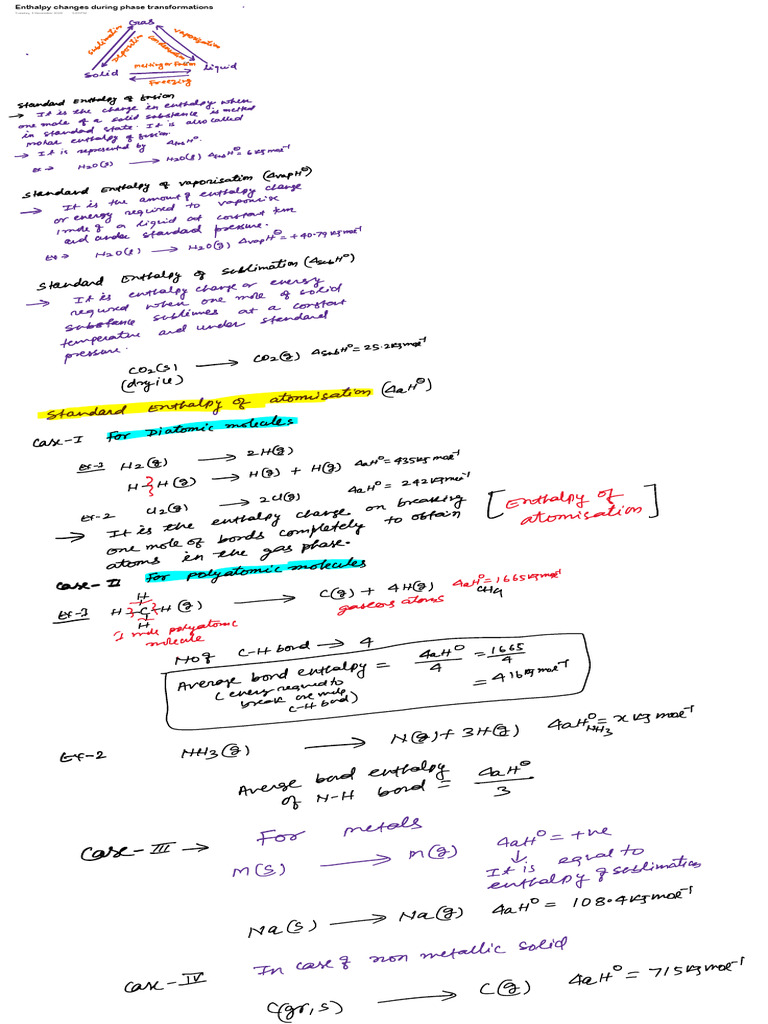 Enthalpy changes during phase transformations
Gas
Sublimation
Deposition
Condensation
Vaporization
Solid
Melting or Fusion
liquid
Freezing
Standard Enthalpy of fusion
→ It is the change in enthalpy when
one mole of a solid substance is melted
in standard state. It is also called
molar enthalpy of fusion.
→ It is represented by ΔfusH°.
Ex → H2O(s) → H2O(l) ΔfusH° = 6 kJ mol⁻¹
Standard Enthalpy of vaporisation (ΔvapH°)
→ It is the amount of enthalpy change
or energy required to vaporize
1 mole of a liquid at constant tem
and under standard pressure.
Ex → H2O(l) → H2O(g) ΔvapH° = +40.79 kJ mol⁻¹
Standard Enthalpy of sublimation (ΔsubH°)
→ It is enthalpy change or energy
required when one mole of solid
substance sublimes at a constant
temperature and under standard
pressure.
CO2(s) → CO2(g) ΔsubH° = 25.2 kJ mol⁻¹
(dry ice)
Standard Enthalpy of atomisation (ΔaH°)
Case-I For Diatomic molecules
Ex-1 H2(g) → 2H(g)
H H(g) → H(g) + H(g) ΔaH° = 435 kJ mol⁻¹
Ex-2 Cl2(g) → 2Cl(g) ΔaH° = 242 kJ mol⁻¹
→ It is the enthalpy change on breaking
one mole of bonds completely to obtain
atoms in the gas phase.
[Enthalpy of
atomisation]
Case-II For polyatomic molecules
H
Ex-1 H-C-H (g) → C(g) + 4H(g) ΔaH° = 1665 kJ mol⁻¹
H
CH4
gaseous atoms
1 mole polyatomic
molecule
No of C-H bond → 4
Average bond enthalpy = ΔaH°/4 = 1665/4
(energy required to
break one mole
C-H bond)
= 416 kJ mol⁻¹
Ex-2 NH3(g) → N(g) + 3H(g) ΔaH° = x kJ mol⁻¹
NH3
Averge bond enthalpy
of N-H bond = ΔaH°/3
Case-III → For metals
M(s) → M(g) ΔaH° = +ve
↓
It is equal to
enthalpy of sublimation
Na(s) → Na(g) ΔaH° = 108.4 kJ mol⁻¹
Case-IV In case of non metallic solid
C(gr,s) → C(g) ΔaH° = 715 kJ mol⁻¹